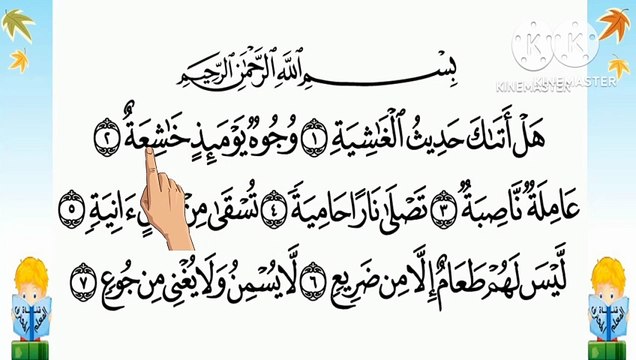 بِسْمِ اللَّهِ الرَّحْمَٰنِ الرَّحِيمِ
KINEMASTER KINEMASTER
هَلْ أَتَىٰكَ حَدِيثُ ٱلْغَٰشِيَةِ ١ وُجُوهٌ يَوْمَئِذٍ خَٰشِعَةٌ ٢
عَامِلَةٌ نَّاصِبَةٌ ٣ تَصْلَىٰ نَارًا حَامِيَةً ٤ تُسْقَىٰ مِنْ ءَانِيَةٍ ٥
لَّيْسَ لَهُمْ طَعَامٌ إِلَّا مِن ضَرِيعٍ ٦ لَّا يُسْمِنُ وَلَا يُغْنِى مِن جُوعٍ ٧